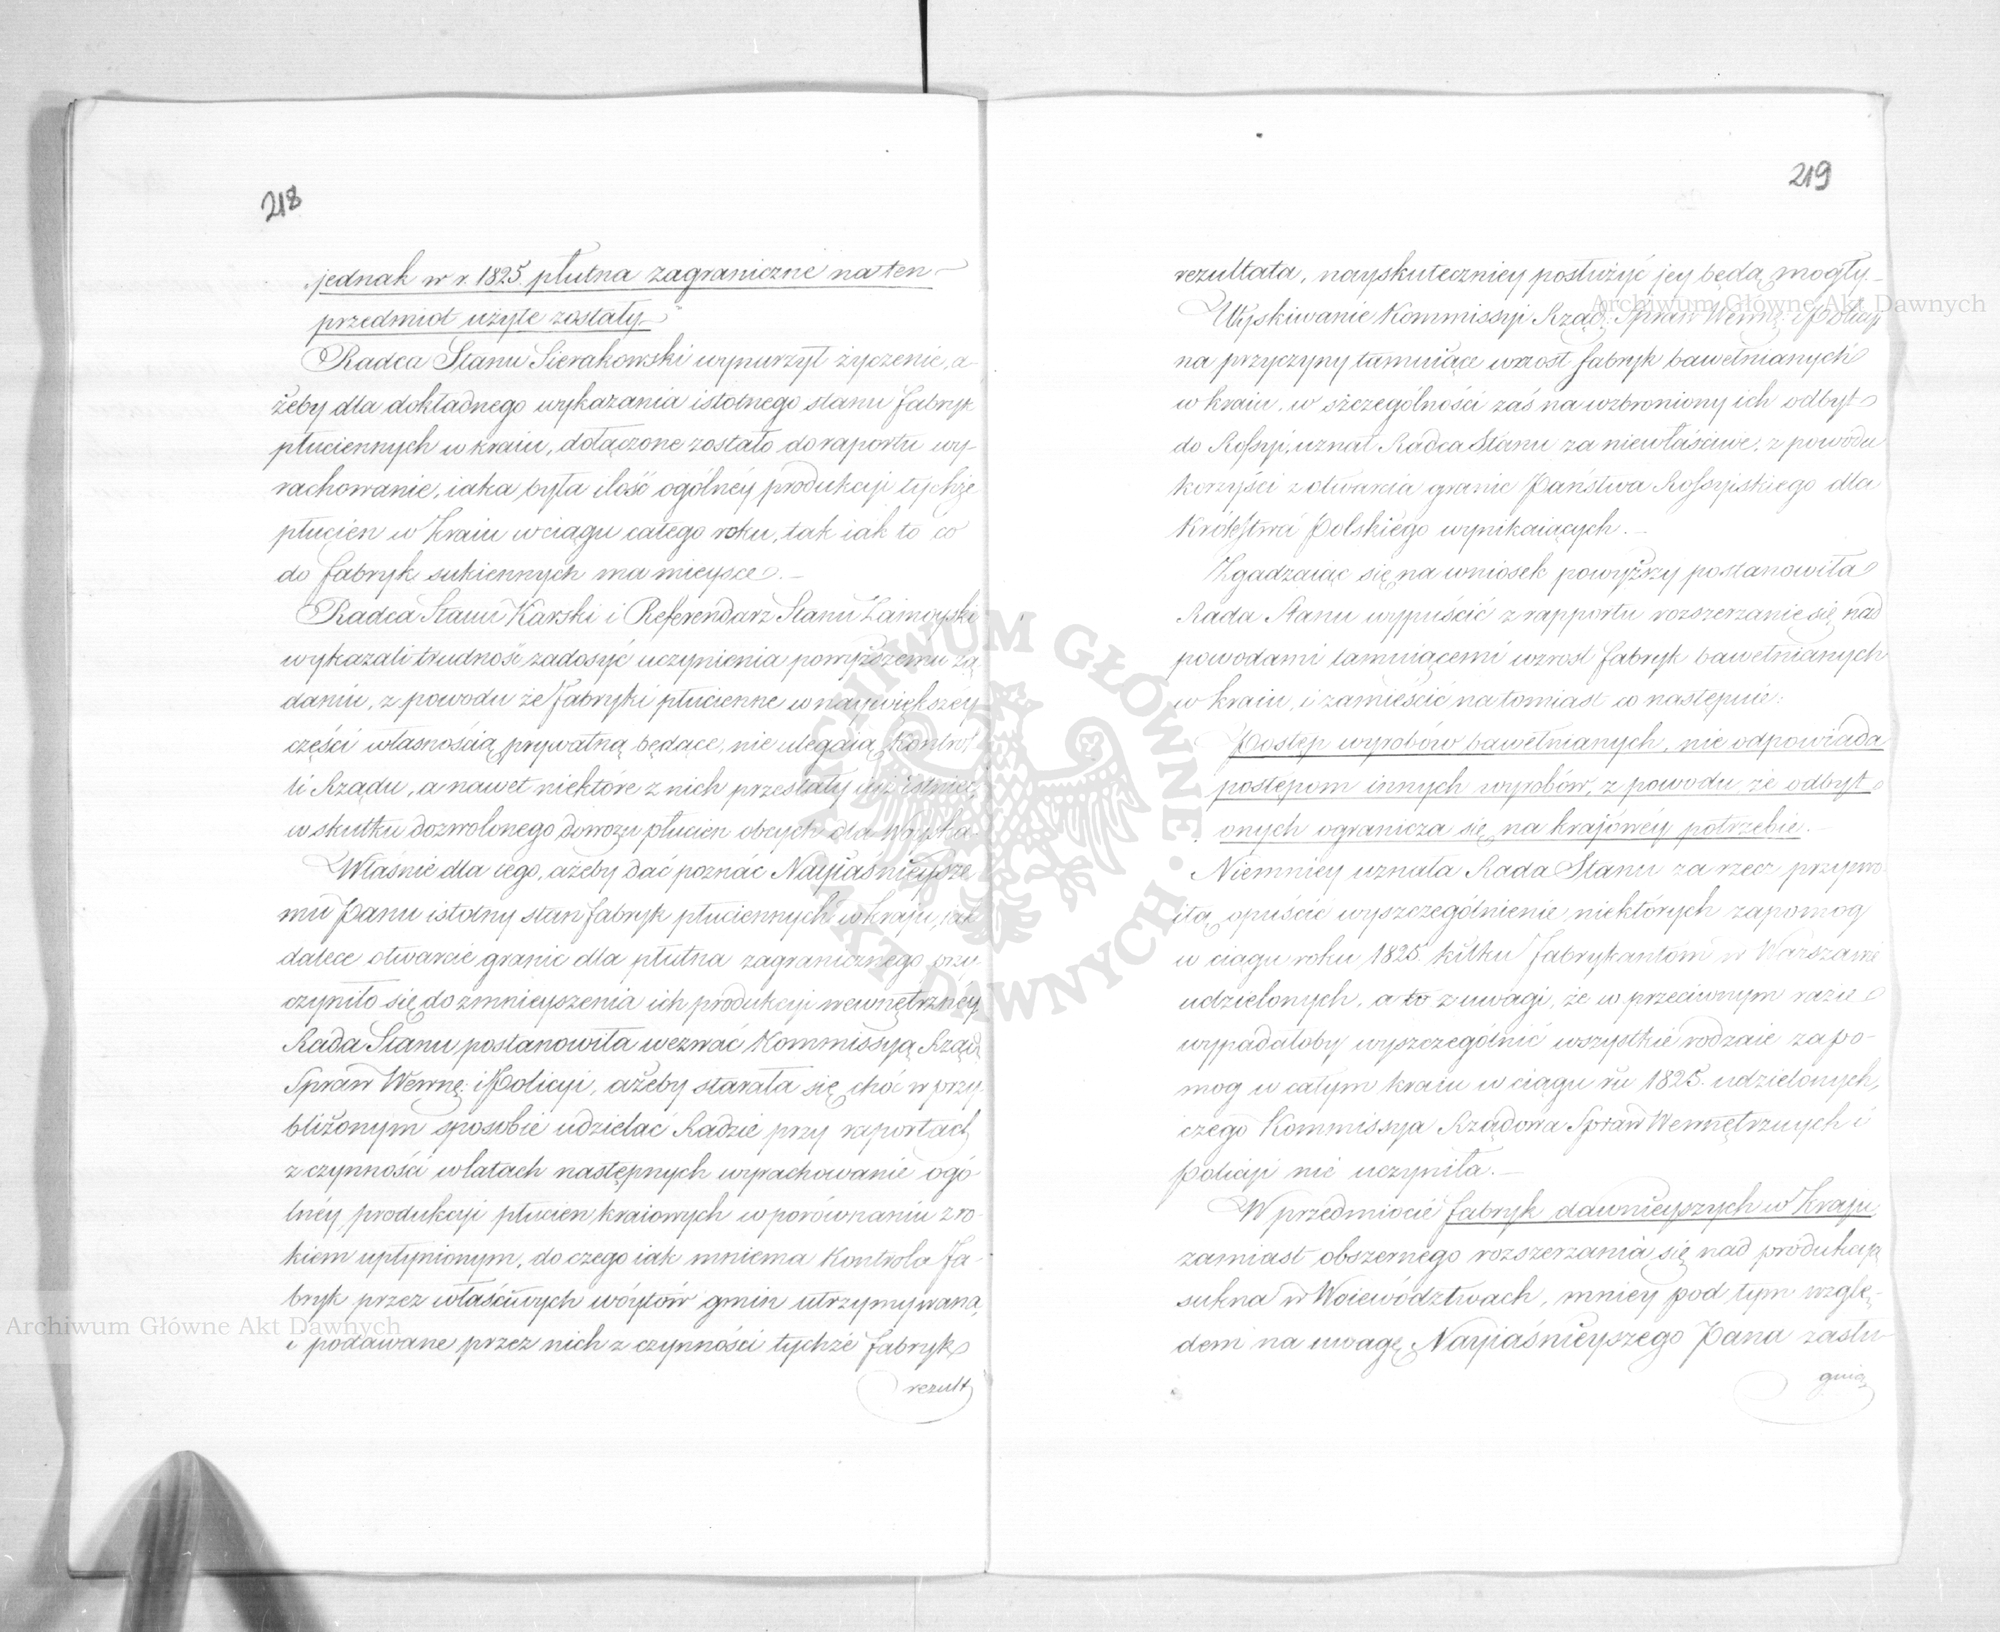 218
„jednak w r. 1825 płutna zagraniczne na ten
przedmiot użyte zostały”
Radca Stanu Sierakowski wynurzył życzenie, a-
żeby dla dokładnego wykazania istotnego stanu fabryk
płuciennych w kraiu, dołączone zostało do raportu wy-
rachowanie, iaka była ilość ogólnéy produkcyi tychże
płucien w Kraiu w ciągu całego roku, tak iak to co
do fabryk sukiennych ma mieysce. –
Radca Stanu Karski i Referendarz Stanu Zamoyski
wykazali trudność zadosyć uczynienia powyższemu żą
daniu, z powodu że fabryki płucienne w naywiększéy
części własnością prywatną będące, nie ulegaią kontrol
li Rządu, a nawet niektóre z nich przestały iuż istnieć
w skutku dozwolonego dowozu płucien obcych dla Woyska.
Właśnie dla tego, ażeby dać poznać Nayiaśnieysze
mu Panu istotny stan fabryk płuciennych w kraju, iak
dalece otwarcie granic dla płutna zagranicznego przy
czyniło się do zmnieyszenia ich produkcyi wewnętrznéy
Rada Stanu postanowiła wezwać Kommissyą Rząd
Spraw Wewnę: i Policyi, ażeby starała się, choć w przy-
bliżonym sposobie udzielać Radzie przy raportach
z czynności w latach następnych wyrachowanie ogó-
lnéy produkcyi płucien kraiowych w porównaniu z ro-
kiem upłynionym, do czego iak mniema Kontrola fa-
bryk przez właściwych wóytów gmin utrzymywana,
i podawane przez nich z czynności tychże fabryk
rezult
219
rezultata, nayskuteczniey posłużyć jey będą mogły. –
Użyskiwanie Kommissyi Rząd: Spraw Wewnę: i Policyi
na przyczyny tamuiące wzrost fabryk bawełnianych
w kraiu, w szczególności zaś na wzbroniony ich odbyt
do Rossyi, uznał Radca Stanu za niewłaściwe, z powodu
korzyści z otwarcia granic Państwa Rossyiskiego dla
Królestwa Polskiego wynikaiących. –
Zgadzaiąc się na wniosek powyższy postanowiła
Rada Stanu wypuścić z rapportu rozszerzanie się nad
powodami tamuiącemi wzrost fabryk bawełnianych
w kraiu, i zamieścić natomiast co nastepuie:
„Postęp wyrobów bawełnianych, nie odpowiada
postępom innych wyrobów, z powodu, że odbyt
onych ogranicza się na krajowéy potrzebie. –
Niemniey uznała Rada Stanu za rzecz przyzwo-
itą opuścić wyszczególnienie niektórych zapomog
w ciągu roku 1825 kilku fabrykantom w Warszawie
udzielonych, a to z uwagi, że w przeciwnym razie
wypadałoby wyszczególnić wszystkie rodzaie zapo-
mog w całym kraiu w ciągu ru 1825. udzielonych,
czego Kommissya Rządowa Spraw Wewnętrznych i
Policyi nie uczyniła. –
W przedmiocie fabryk dawnieyszych w Kraju
zamiast obszernego rozszerzania się nad produkcyą
sukna w Woiewództwach, mniey pod tym wzglę-
dem na uwagę Nayiaśnieyszego Pana zasłu
guią
Archiwum Główne Akt Dawnych
ARCHIWUM GŁÓWNE AKT DAWNYCH
Archiwum Główne Akt Dawnych